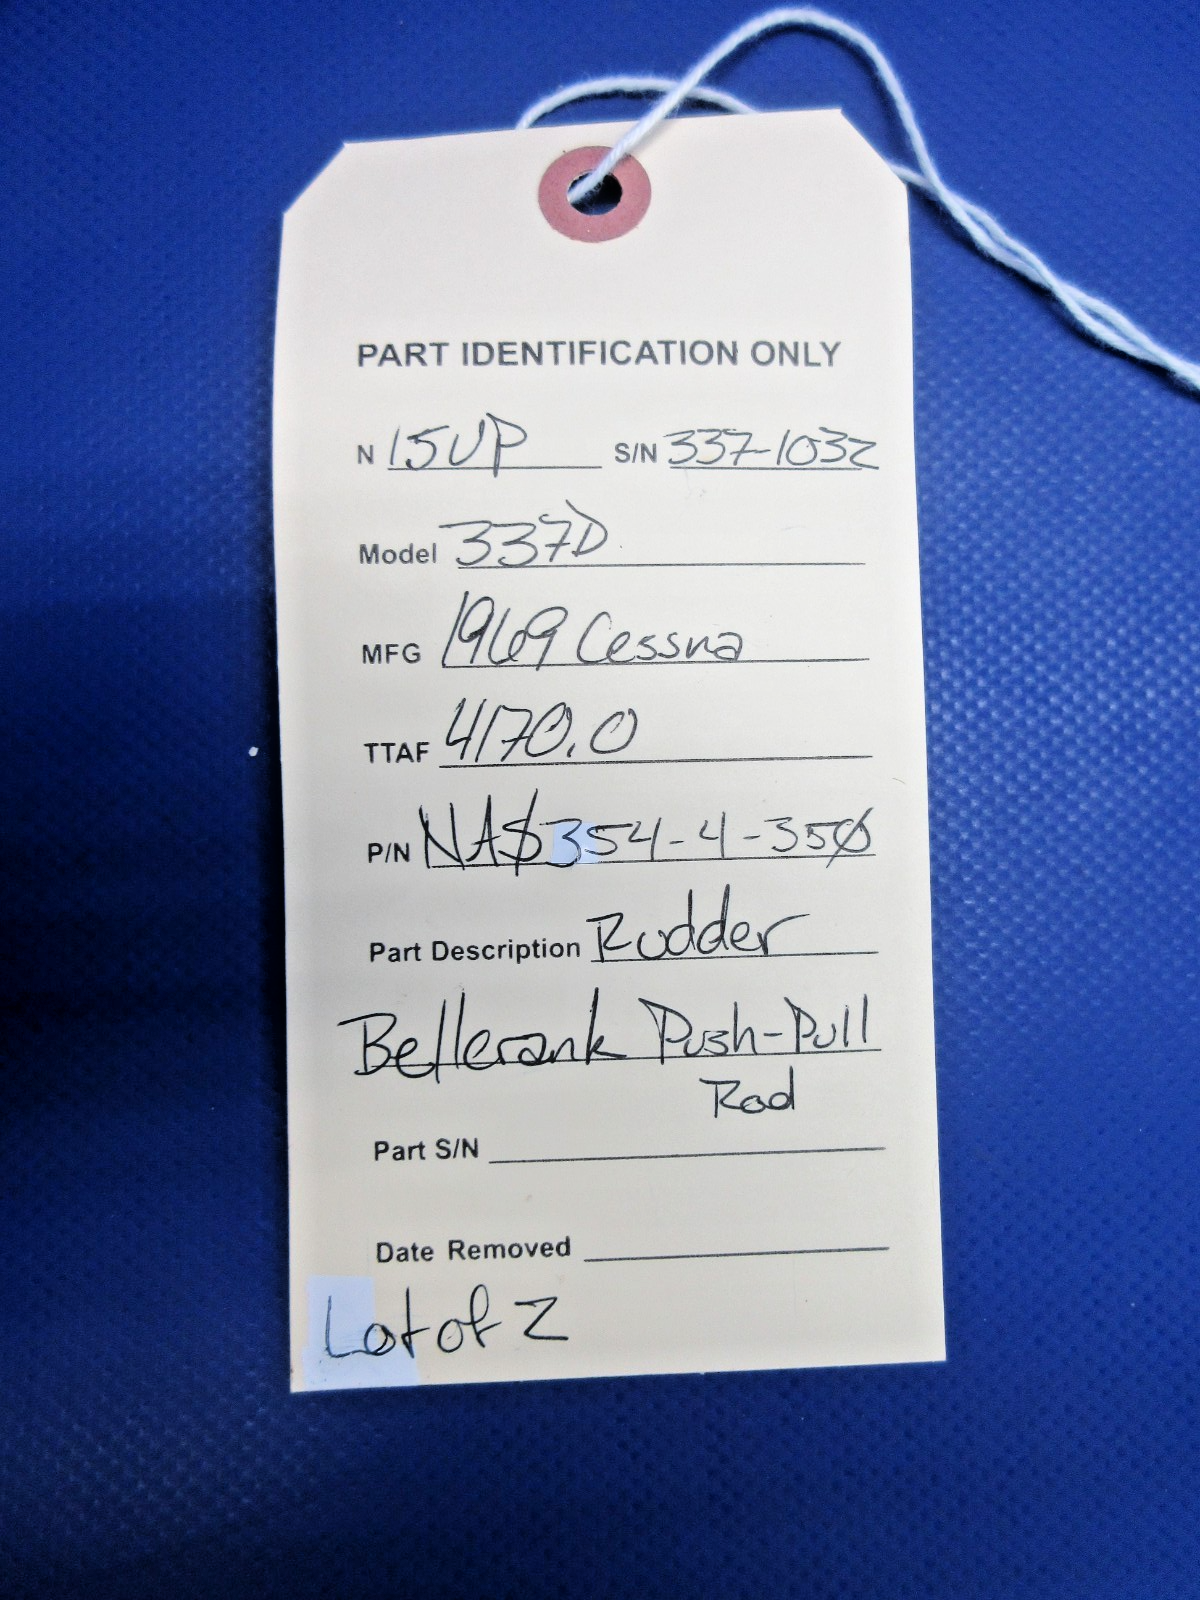 PART IDENTIFICATION ONLY
N 15UP S/N 337-1032
Model 337D
MFG 1969 Cessna
TTAF 4170.0
P/N NAS354-4-350
Part Description Rudder
Bellcrank Push-Pull
Rod
Part S/N
Date Removed
Lot of 2